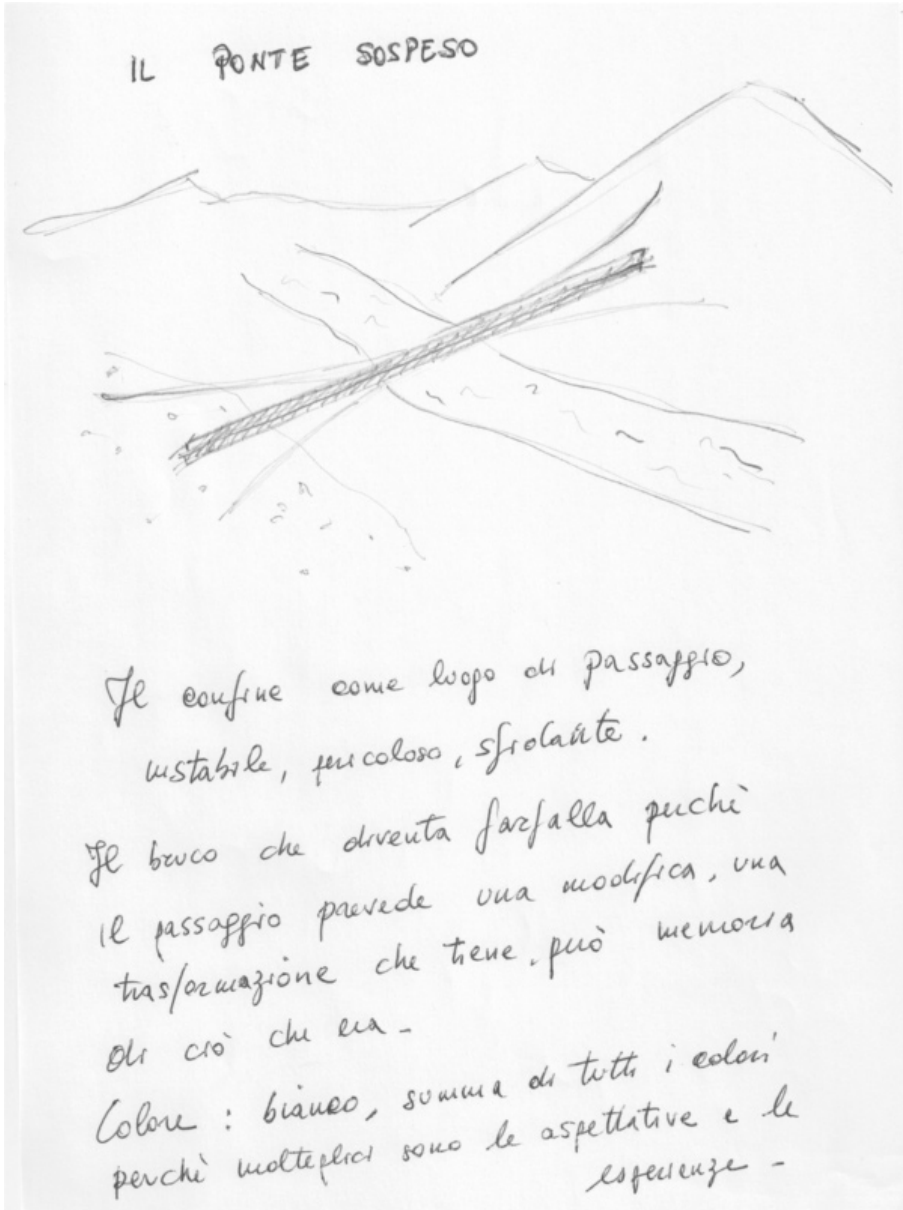 IL PONTE SOSPESO
Il confine come luogo di passaggio,
instabile, pericoloso, sfidante.
Il bruco che diventa farfalla perchè
il passaggio prevede una modifica, una
trasformazione che tiene, però memoria
di ciò che era -
Colore : bianco, summa di tutti i colori
perchè molteplici sono le aspettative e le
esperienze -